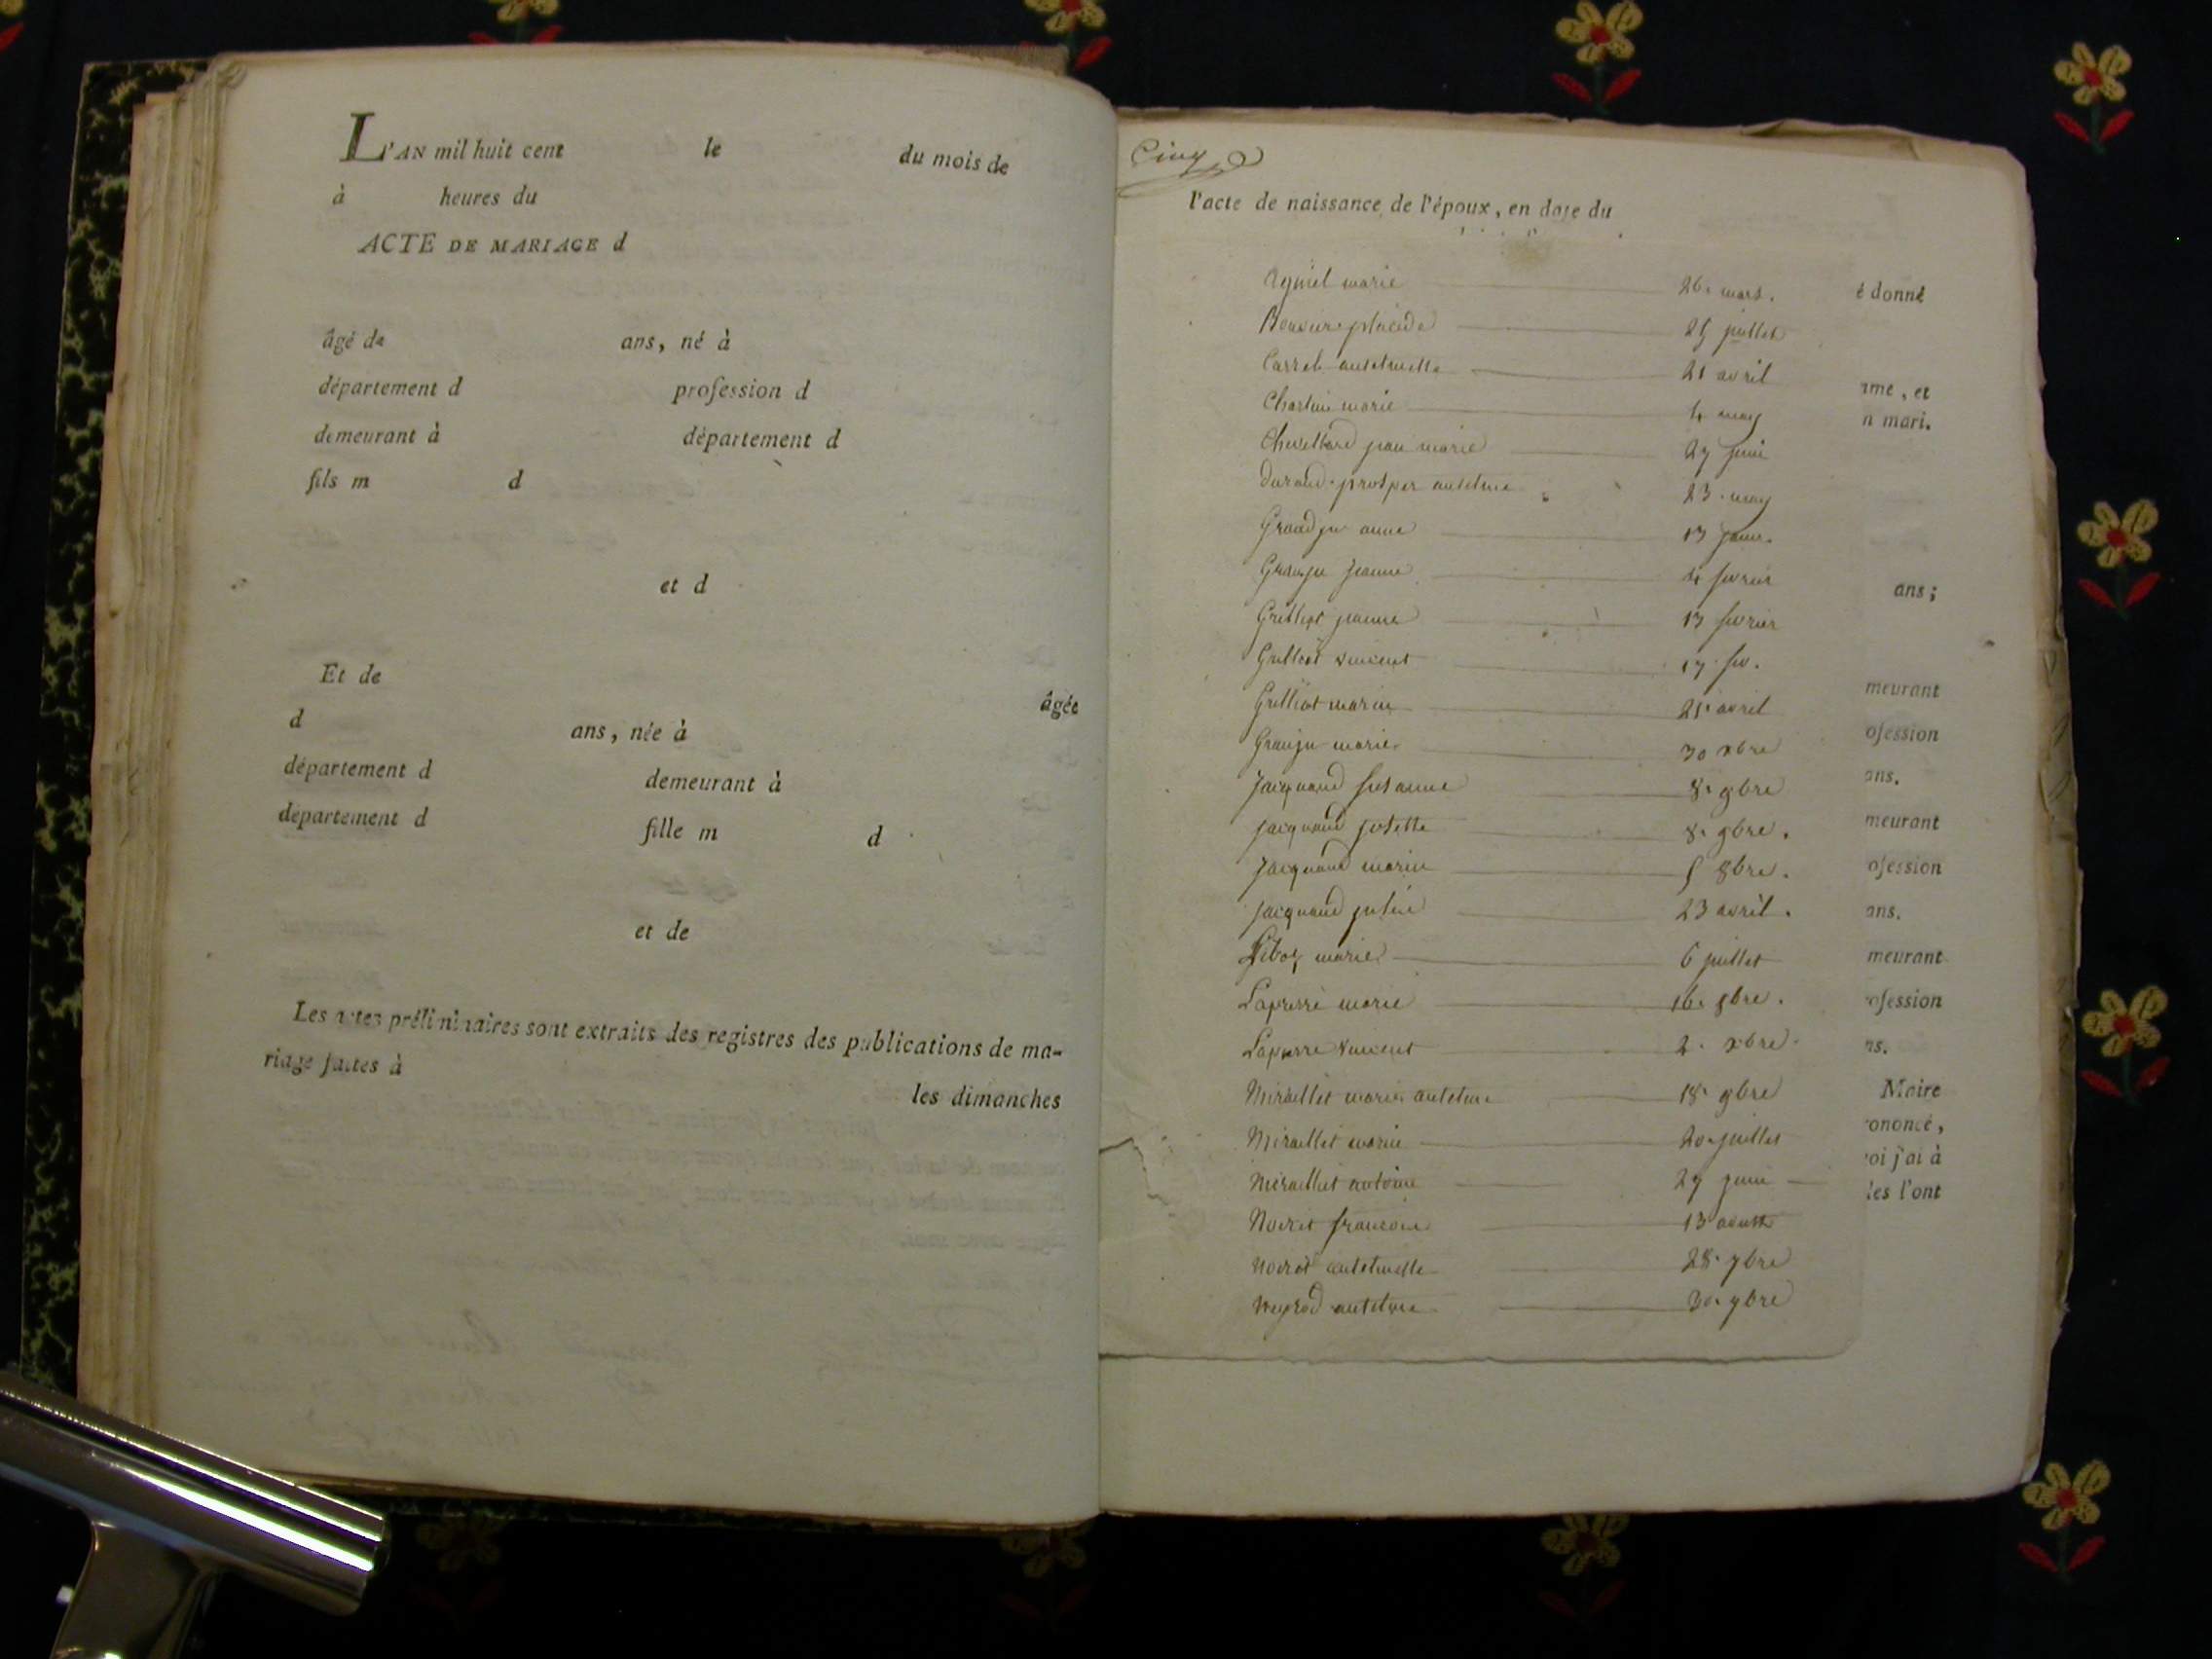 L'AN mil huit cent le du mois de
à heures du
ACTE DE MARIAGE d
âgé de ans, né à
département d profession d
demeurant à département d
fils m d
et d
Et de
âgée
d ans, née à
département d demeurant à
département d fille m d
et de
Les actes préliminaires sont extraits des registres des publications de ma-
riage faites à
les dimanches
Cinq
l'acte de naissance de l'époux, en date du
marie 26. mars.
é donné
placide 25 juillet
21 avril
me, et
marie 4 may
n mari.
jean marie 27 juin
Durand prosper antelme 23. may
anne 13 janv.
jeanne 4 fevrier
ans;
Grilliot jeanne 13 fevrier
Grilliot vincent 17. fev.
meurant
Grilliot marie 25. avril
ofession
Granju marie 30 xbre
ans.
Jacquand susanne 8. 9bre
Jacquand josette 8. 9bre.
meurant
Jacquand marie 5 8bre.
ofession
Jacquand julie 23 avril.
ans.
marie 6 juillet
meurant
marie 16. 8bre.
ofession
vincent 2. xbre.
ns.
Miraillet marie antelme 18. 9bre
Maire
Miraillet marie 20. juillet
ononcé,
Miraillet antoine 27 juin
oi j'ai à
Noirot 13 aoust
les l'ont
Noirot antelmette 28. 7bre
antelme 30. 7bre